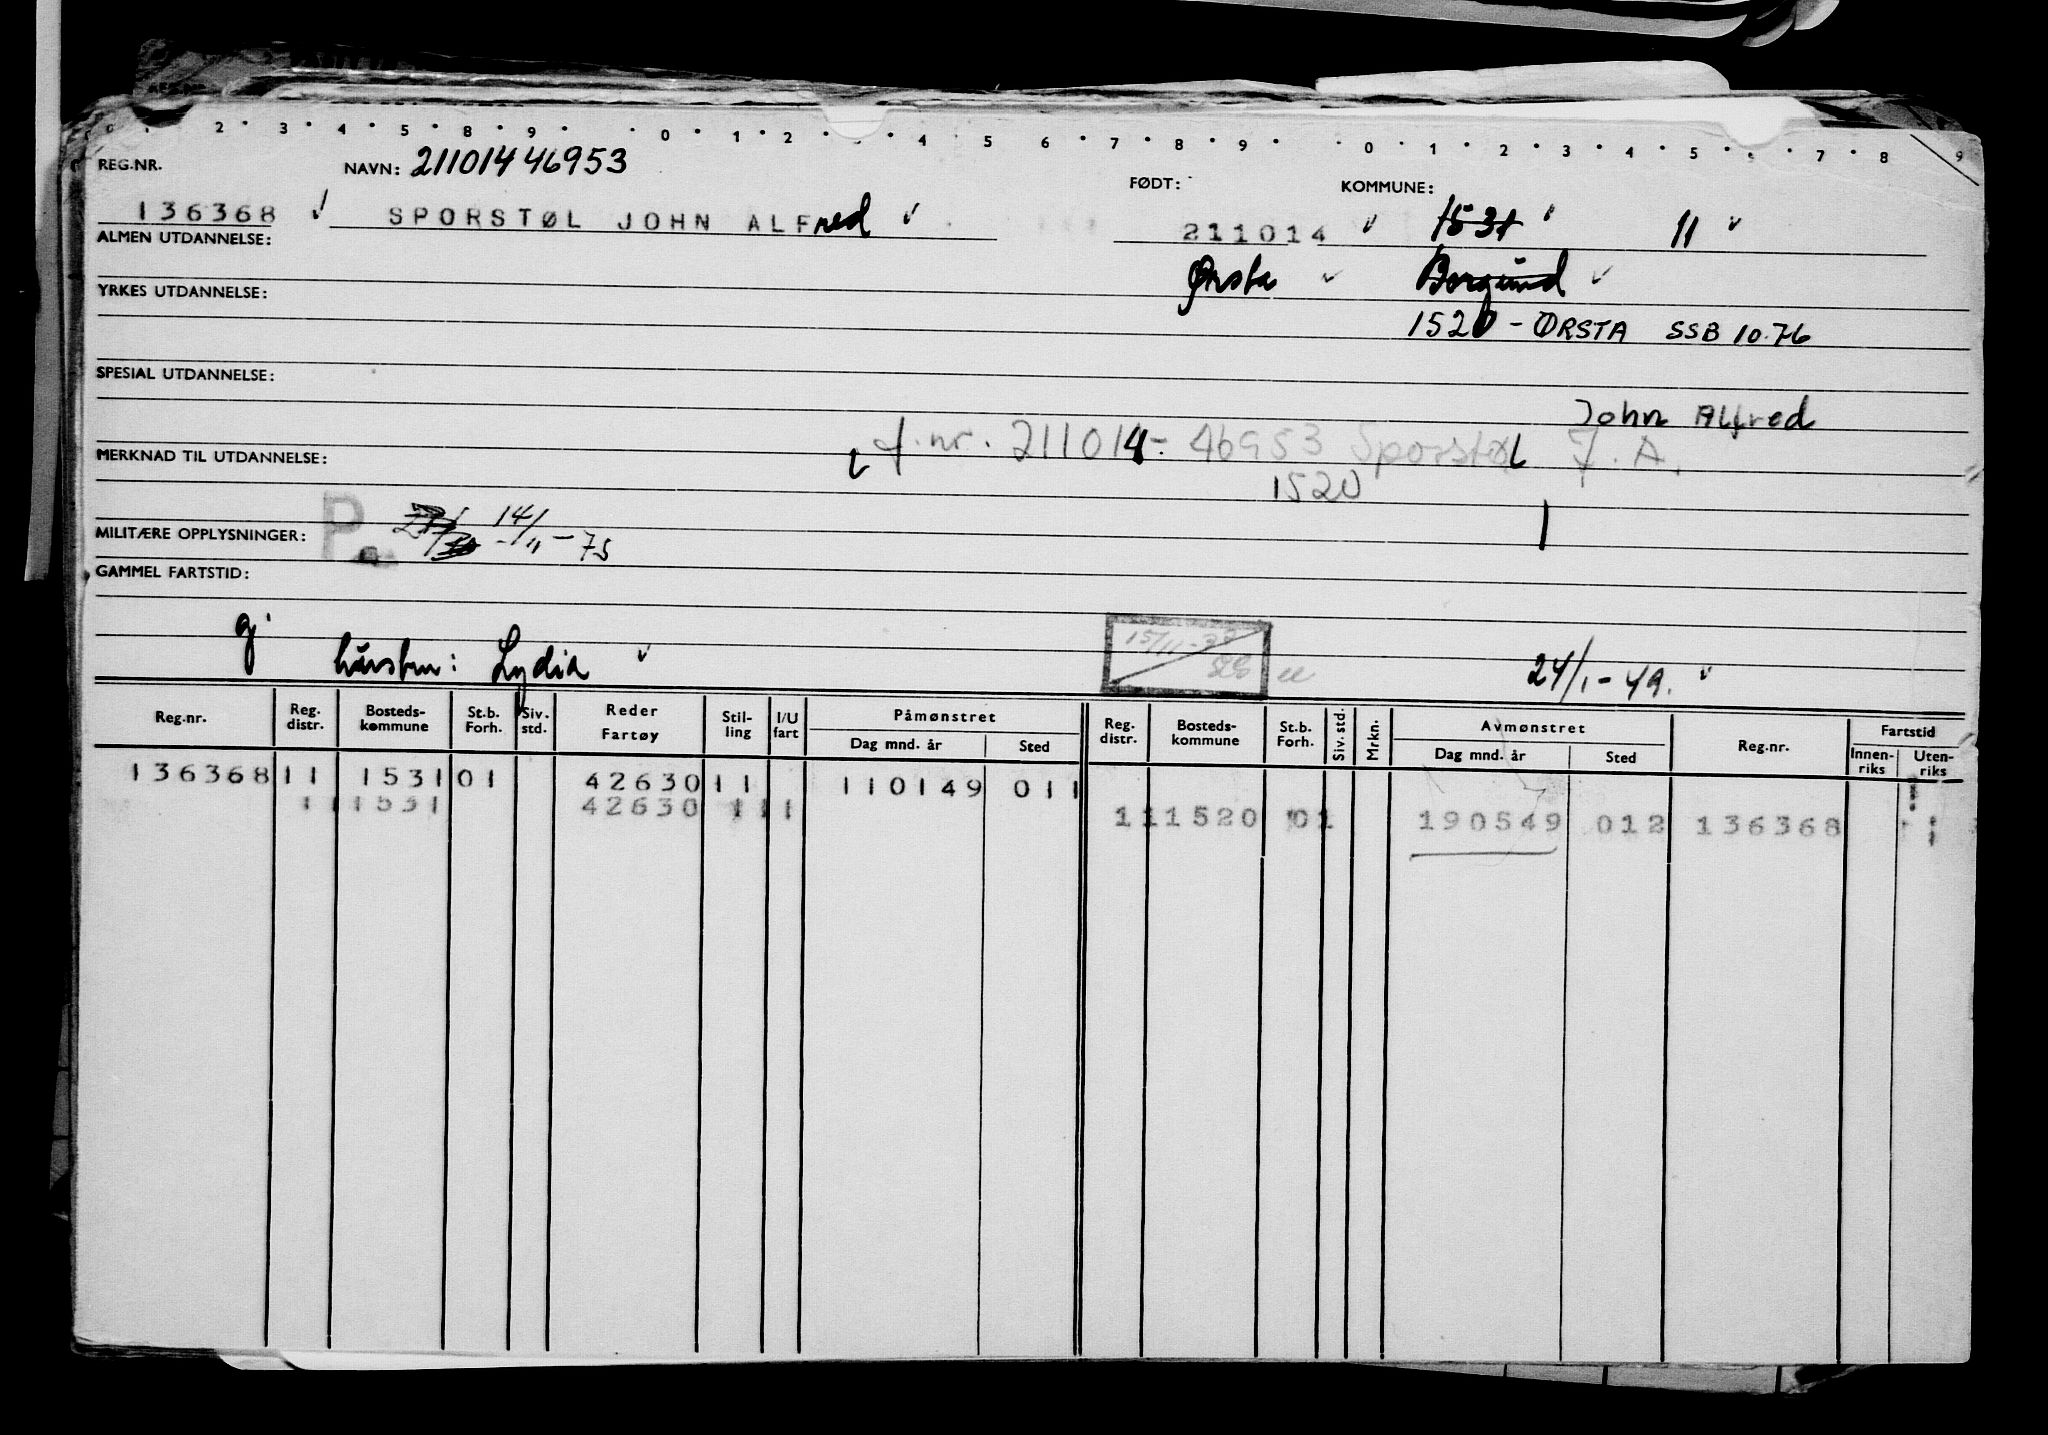 0 1 2 3 4 5 6 8 9 0 1 2 4 5 6 7 8 9 0 1 2 3 4 5 6 7 8 9
REG.NR. NAVN: 21101446953 FØDT: KOMMUNE:
136368 SPORSTØL JOHN ALFred 211014 1531 11
ALMEN UTDANNELSE:
Ørsta Borgund
YRKES UTDANNELSE:
1520 - ØRSTA SSB 10.76
SPESIAL UTDANNELSE:
John Alfred
f.nr. 211014- 46953 Sporstøl J. A.
MERKNAD TIL UTDANNELSE:
1520
P. 14/11-75
MILITÆRE OPPLYSNINGER:
GAMMEL FARTSTID:
g. 15/11-
hustru: Lydia 24/1-49.
Reg.nr. Reg. distr. Bosteds-kommune St.b. Forh. Siv. std. Reder Fartøy Stil-ling I/U fart Påmønstret Dag mnd. år Sted Reg. distr. Bosteds-kommune St.b. Forh. Siv. std. Mrkn. Avmønstret Dag mnd. år Sted Reg.nr. Fartstid Innen-riks Uten-riks
136368 11 1531 01 42630 11 110149 011
11 1531 42630 11 1 11 1520 01 190549 012 136368